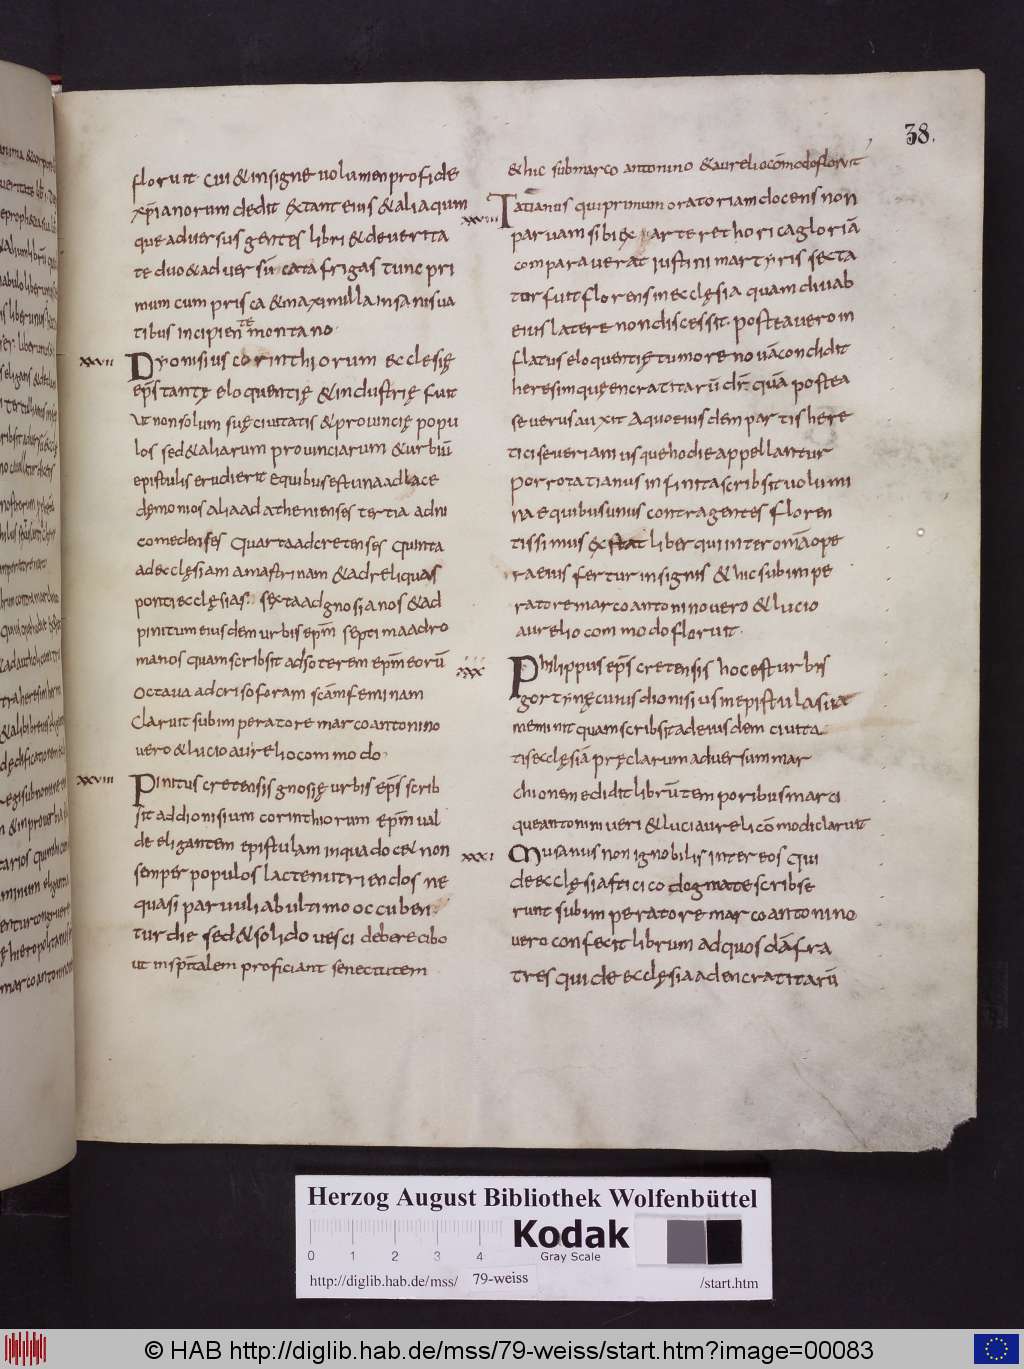 38.
floruit cui & insigne volumen pro fide
xp̃ianorum dedit extant eius & alia quin
que adversus gentes libri & de verita
te duo & adversũ catafrigas tunc pri
mum cum prisca & maximilla insanis va
tibus incipiente montano·
xxvii Dyonisius corinthiorum ecclesię
ep̃s tantę eloquentię & industrię fuit
ut non solum suę civitatis & provincię popu
los sed & aliarum provinciarum & urbiũ
epistulis erudierit equibus est una ad lace
dęmonios alia ad athenienses tertia ad ni
comedenses quarta ad cretenses quinta
ad ecclęsiam amastrinam & ad reliquas
ponti ecclęsias: sexta ad gnosianos & ad
pinitum eiusdem urbis ep̃m septima ad ro
manos quam scribsit ad soterem ep̃m eorũ
octava ad crisoforam sc̃am feminam
Claruit sub imperatore marco antonino
vero & lucio aurelio commodo·
xxviii Pinitus cretensis gnosię urbis ep̃s scrib
sit ad dionisium corinthiorum ep̃m val
de eligantem epistulam in qua docet non
semper populos lacte nutriendos ne
quasi parvuli ab ultimo occuben
tur die sed & solido vesci debere cibo
ut in sp̃talem proficiant senectutem
& hic sub marco antonino & aurelio cõmodo floruit
xxviiii Tatianus qui primum oratoriam docens non
parvam sibi ex arte rethorica gloriã
comparaverat iustini martyris secta
tor fuit florens in ecclęsia quamdiu ab
eius latere non discessit. postea vero in
flatus eloquentię tumore novã condidit
heresim quę encratitarũ dr̃. quã postea
severus auxit A quo eiusdem partis here
tici severiani usque hodie appellantur
porro tatianus infinita scribsit volumi
na e quibus unus contra gentes floren
tissimus exstat liber qui inter omã ope
ra eius fertur insignis & hic sub impe
ratore marco antonino vero & lucio
aurelio commodo floruit·
xxx Philippus ep̃s cretensis hoc est urbis
gortynę cuius dionisius in epistula sua
meminit quam scribsit ad eiusdem civita
tis ecclęsiã pręclarum adversum mar
chionem edidit librũ temporibus marci
que antonini veri & luci aureli cõmodi claruit
xxxi Musanus non ignobilis inter eos qui
de ecclęsiastico dogmate scribse
runt sub imperatore marco antonino
vero confecit librum ad quosdã fra
tres qui de ecclęsia ad encratitarũ
Herzog August Bibliothek Wolfenbüttel
0 1 2 3 4
Kodak
Gray Scale
http://diglib.hab.de/mss/ 79-weiss /start.htm
© HAB http://diglib.hab.de/mss/79-weiss/start.htm?image=00083